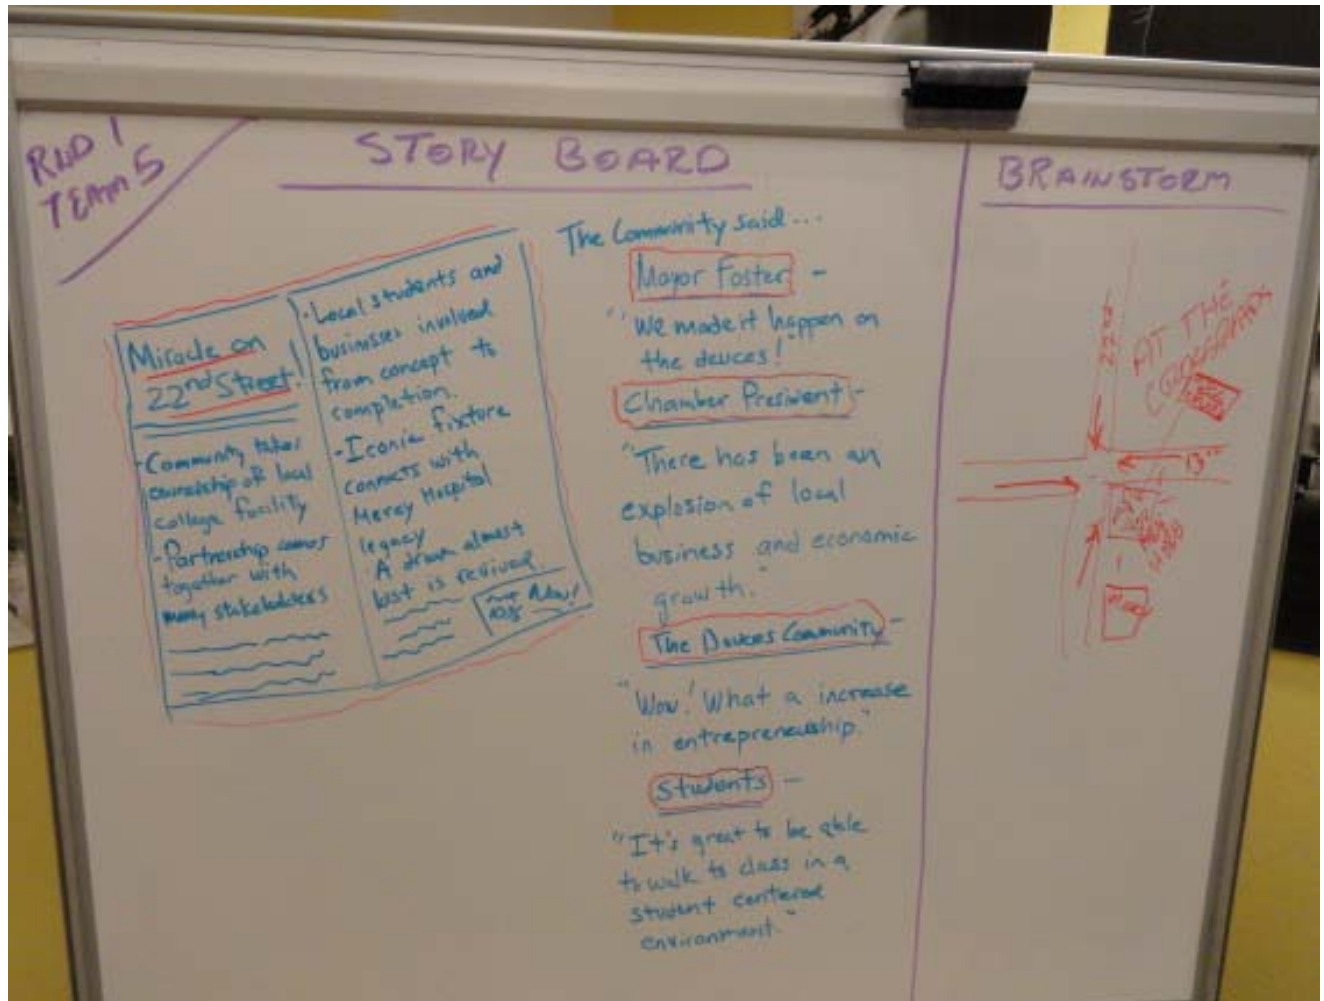 RND 1
TEAM 5
STORY BOARD
Miracle on
22nd Street!
- Community takes
ownership of local
college facility
- Partnership comes
together with
many stakeholders
- Local students and
businesses involved
from concept to
completion.
- Iconic fixture
connects with
Mercy Hospital
legacy
A dream almost
lost is revived
The Community said...
Mayor Foster -
"We made it happen on
the deuces!"
Chamber President -
"There has been an
explosion of local
business and economic
growth."
The Deuces Community -
"Wow! What a increase
in entrepreneuship."
Students -
"It's great to be able
to walk to class in a
student centered
environment."
BRAINSTORM
22nd
AT THE